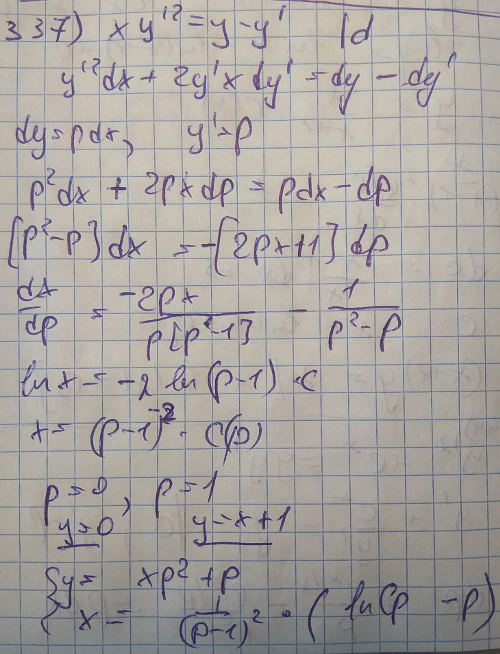 337) xy'² = y - y' | d
y'²dx + 2y'x dy' = dy - dy'
dy = pdx, y' = p
p²dx + 2pxdp = pdx - dp
[p²-p]dx = -[2px+1]dp
dx/dp = -2px/p[p-1] - 1/p²-p
ln x = -2 ln(p-1) · C
x = (p-1)⁻² · C(p)
p = 0, p = 1
y = 0 y = x+1
{ y = xp² + p
{ x = 1/(p-1)² · (ln Cp - p)